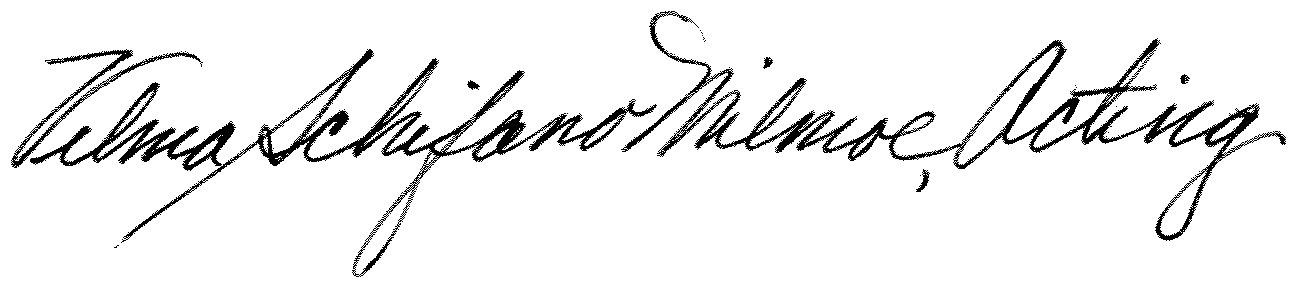 Velma Schifano Milmoe, Acting